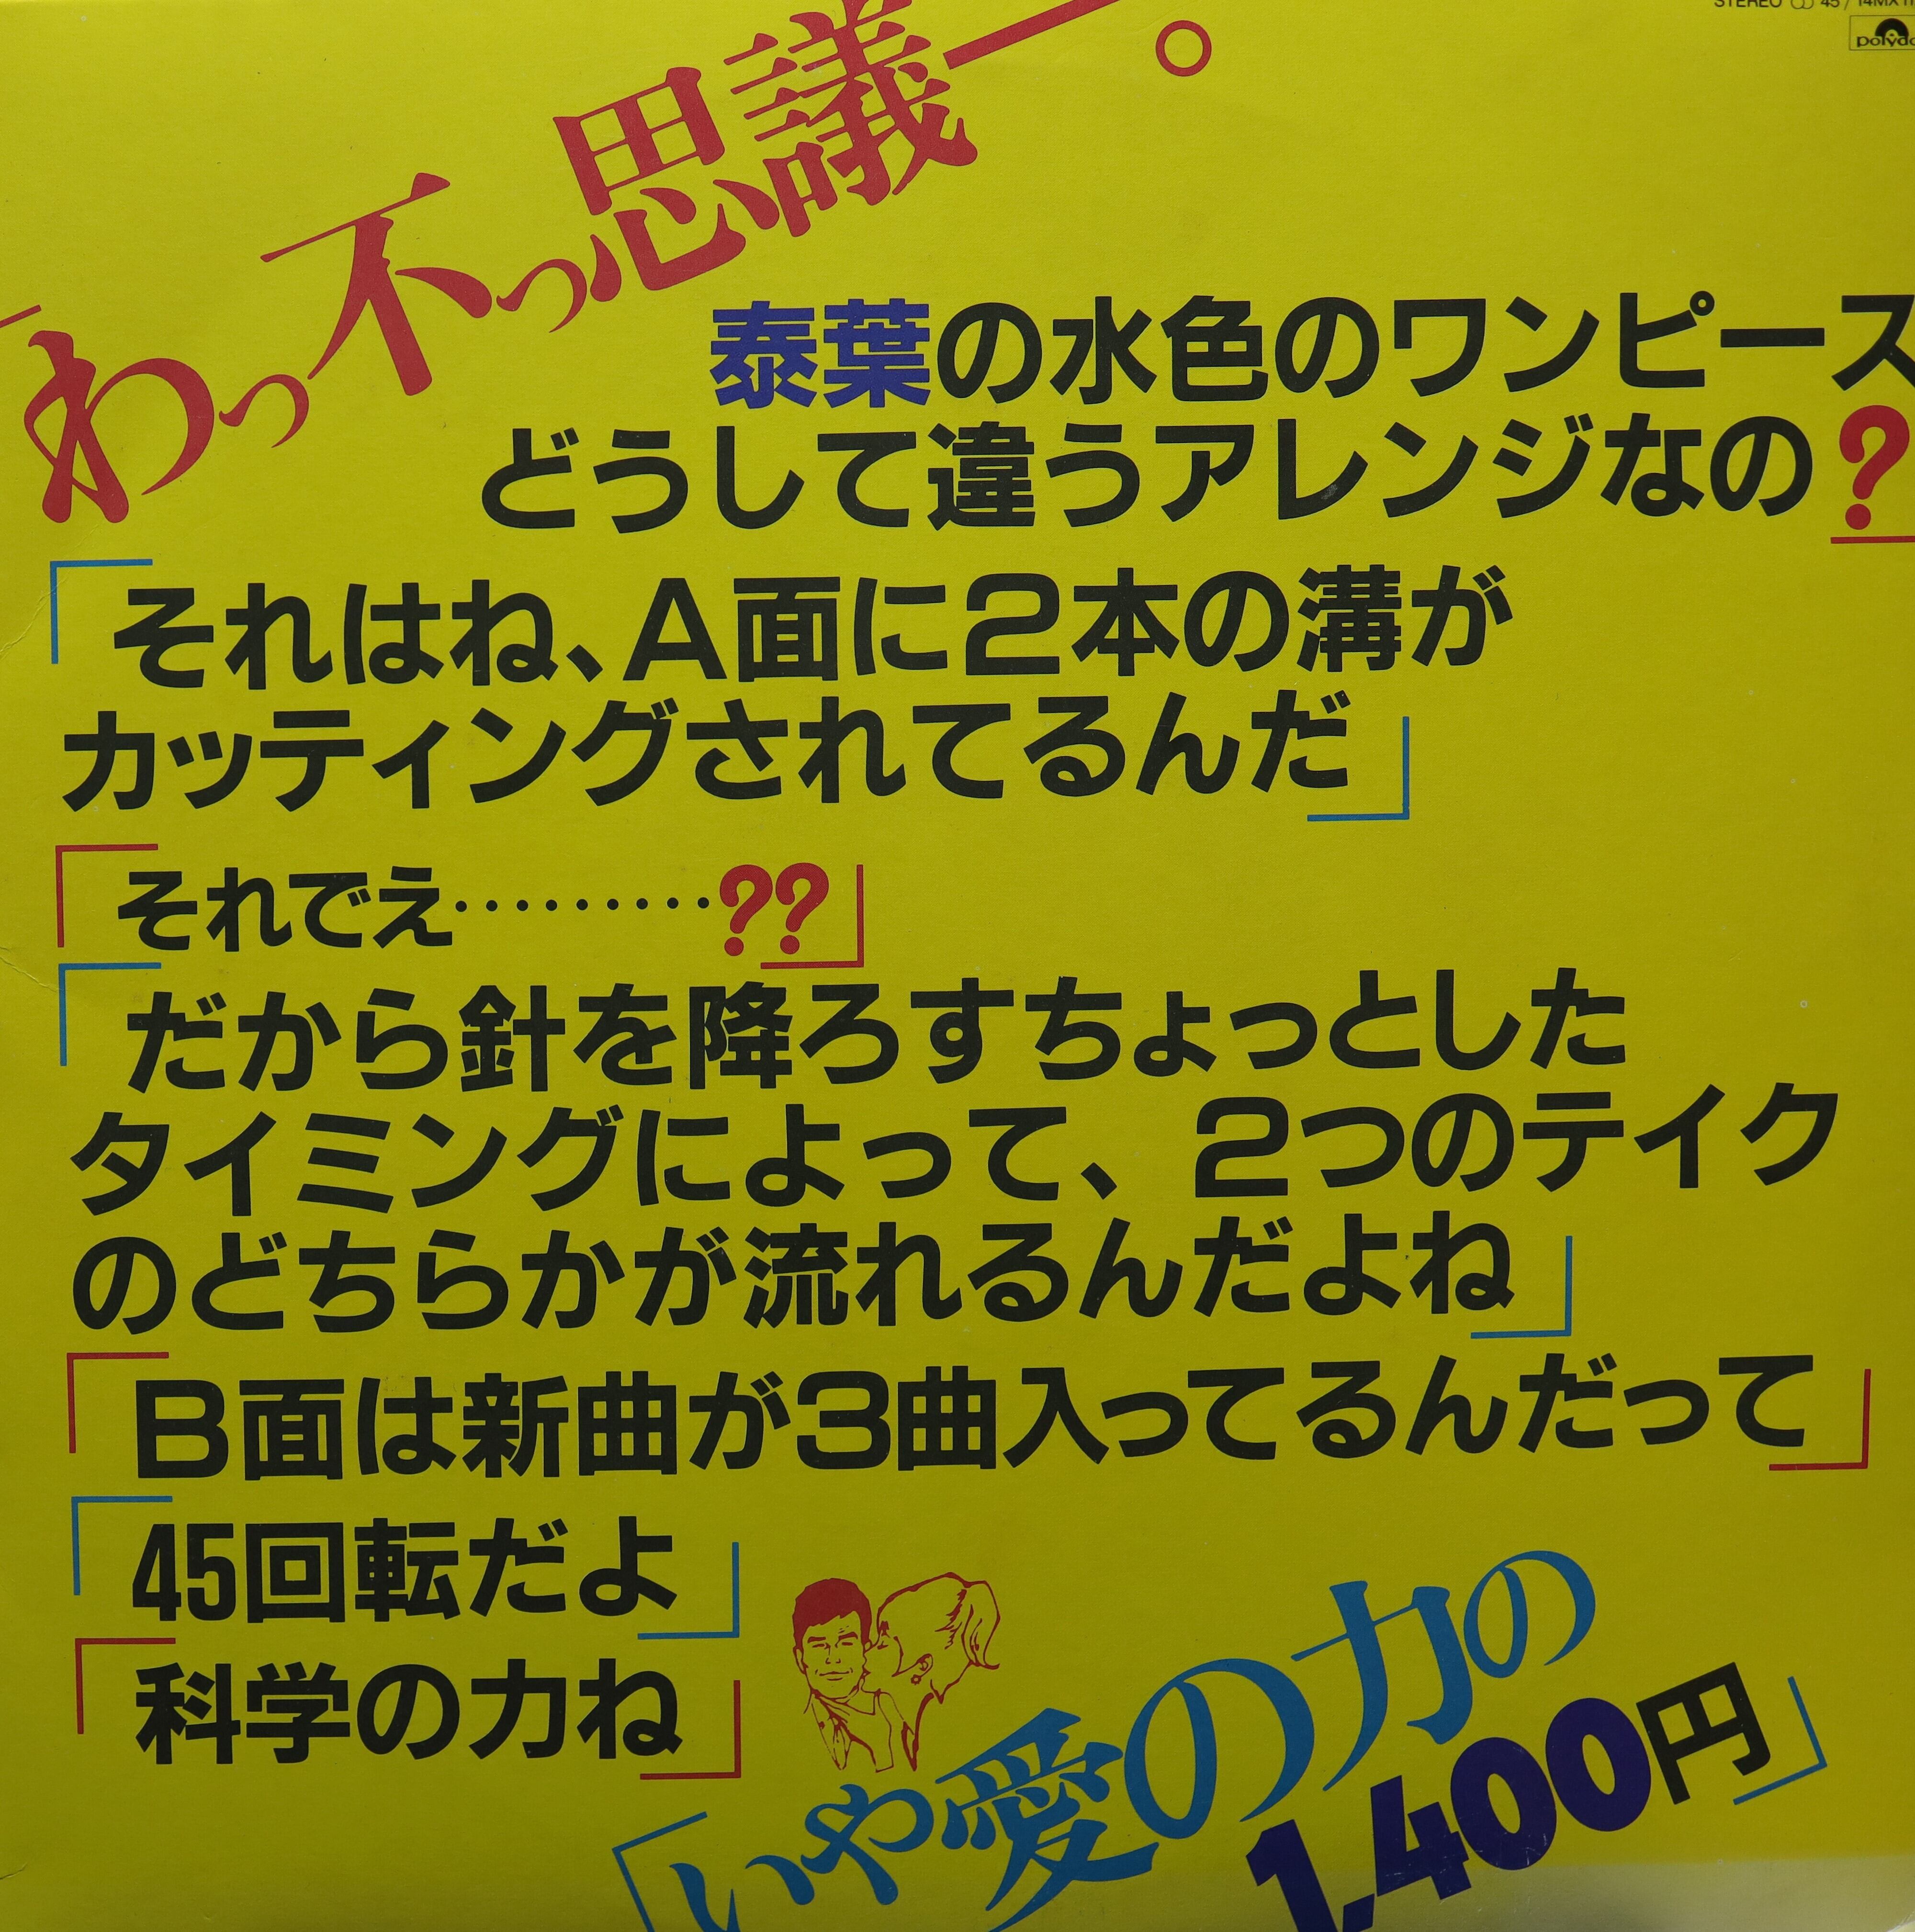 STEREO 45/14MX11
polydo
「わっ不っ思議ー。
泰葉の水色のワンピース
どうして違うアレンジなの？」
「それはね、A面に2本の溝が
カッティングされてるんだ」
「それでえ………??」
「だから針を降ろすちょっとした
タイミングによって、2つのテイク
のどちらかが流れるんだよね」
「B面は新曲が3曲入ってるんだって」
「45回転だよ」
「科学の力ね」
「いや愛の力の
1,400円」